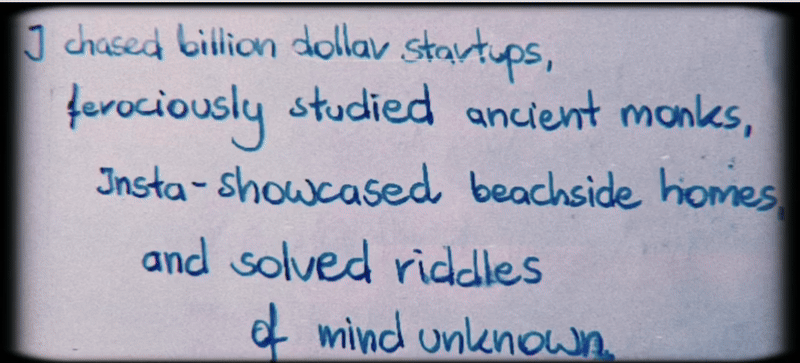 I chased billion dollar startups,
ferociously studied ancient monks,
Insta-showcased beachside homes,
and solved riddles
of mind unknown.